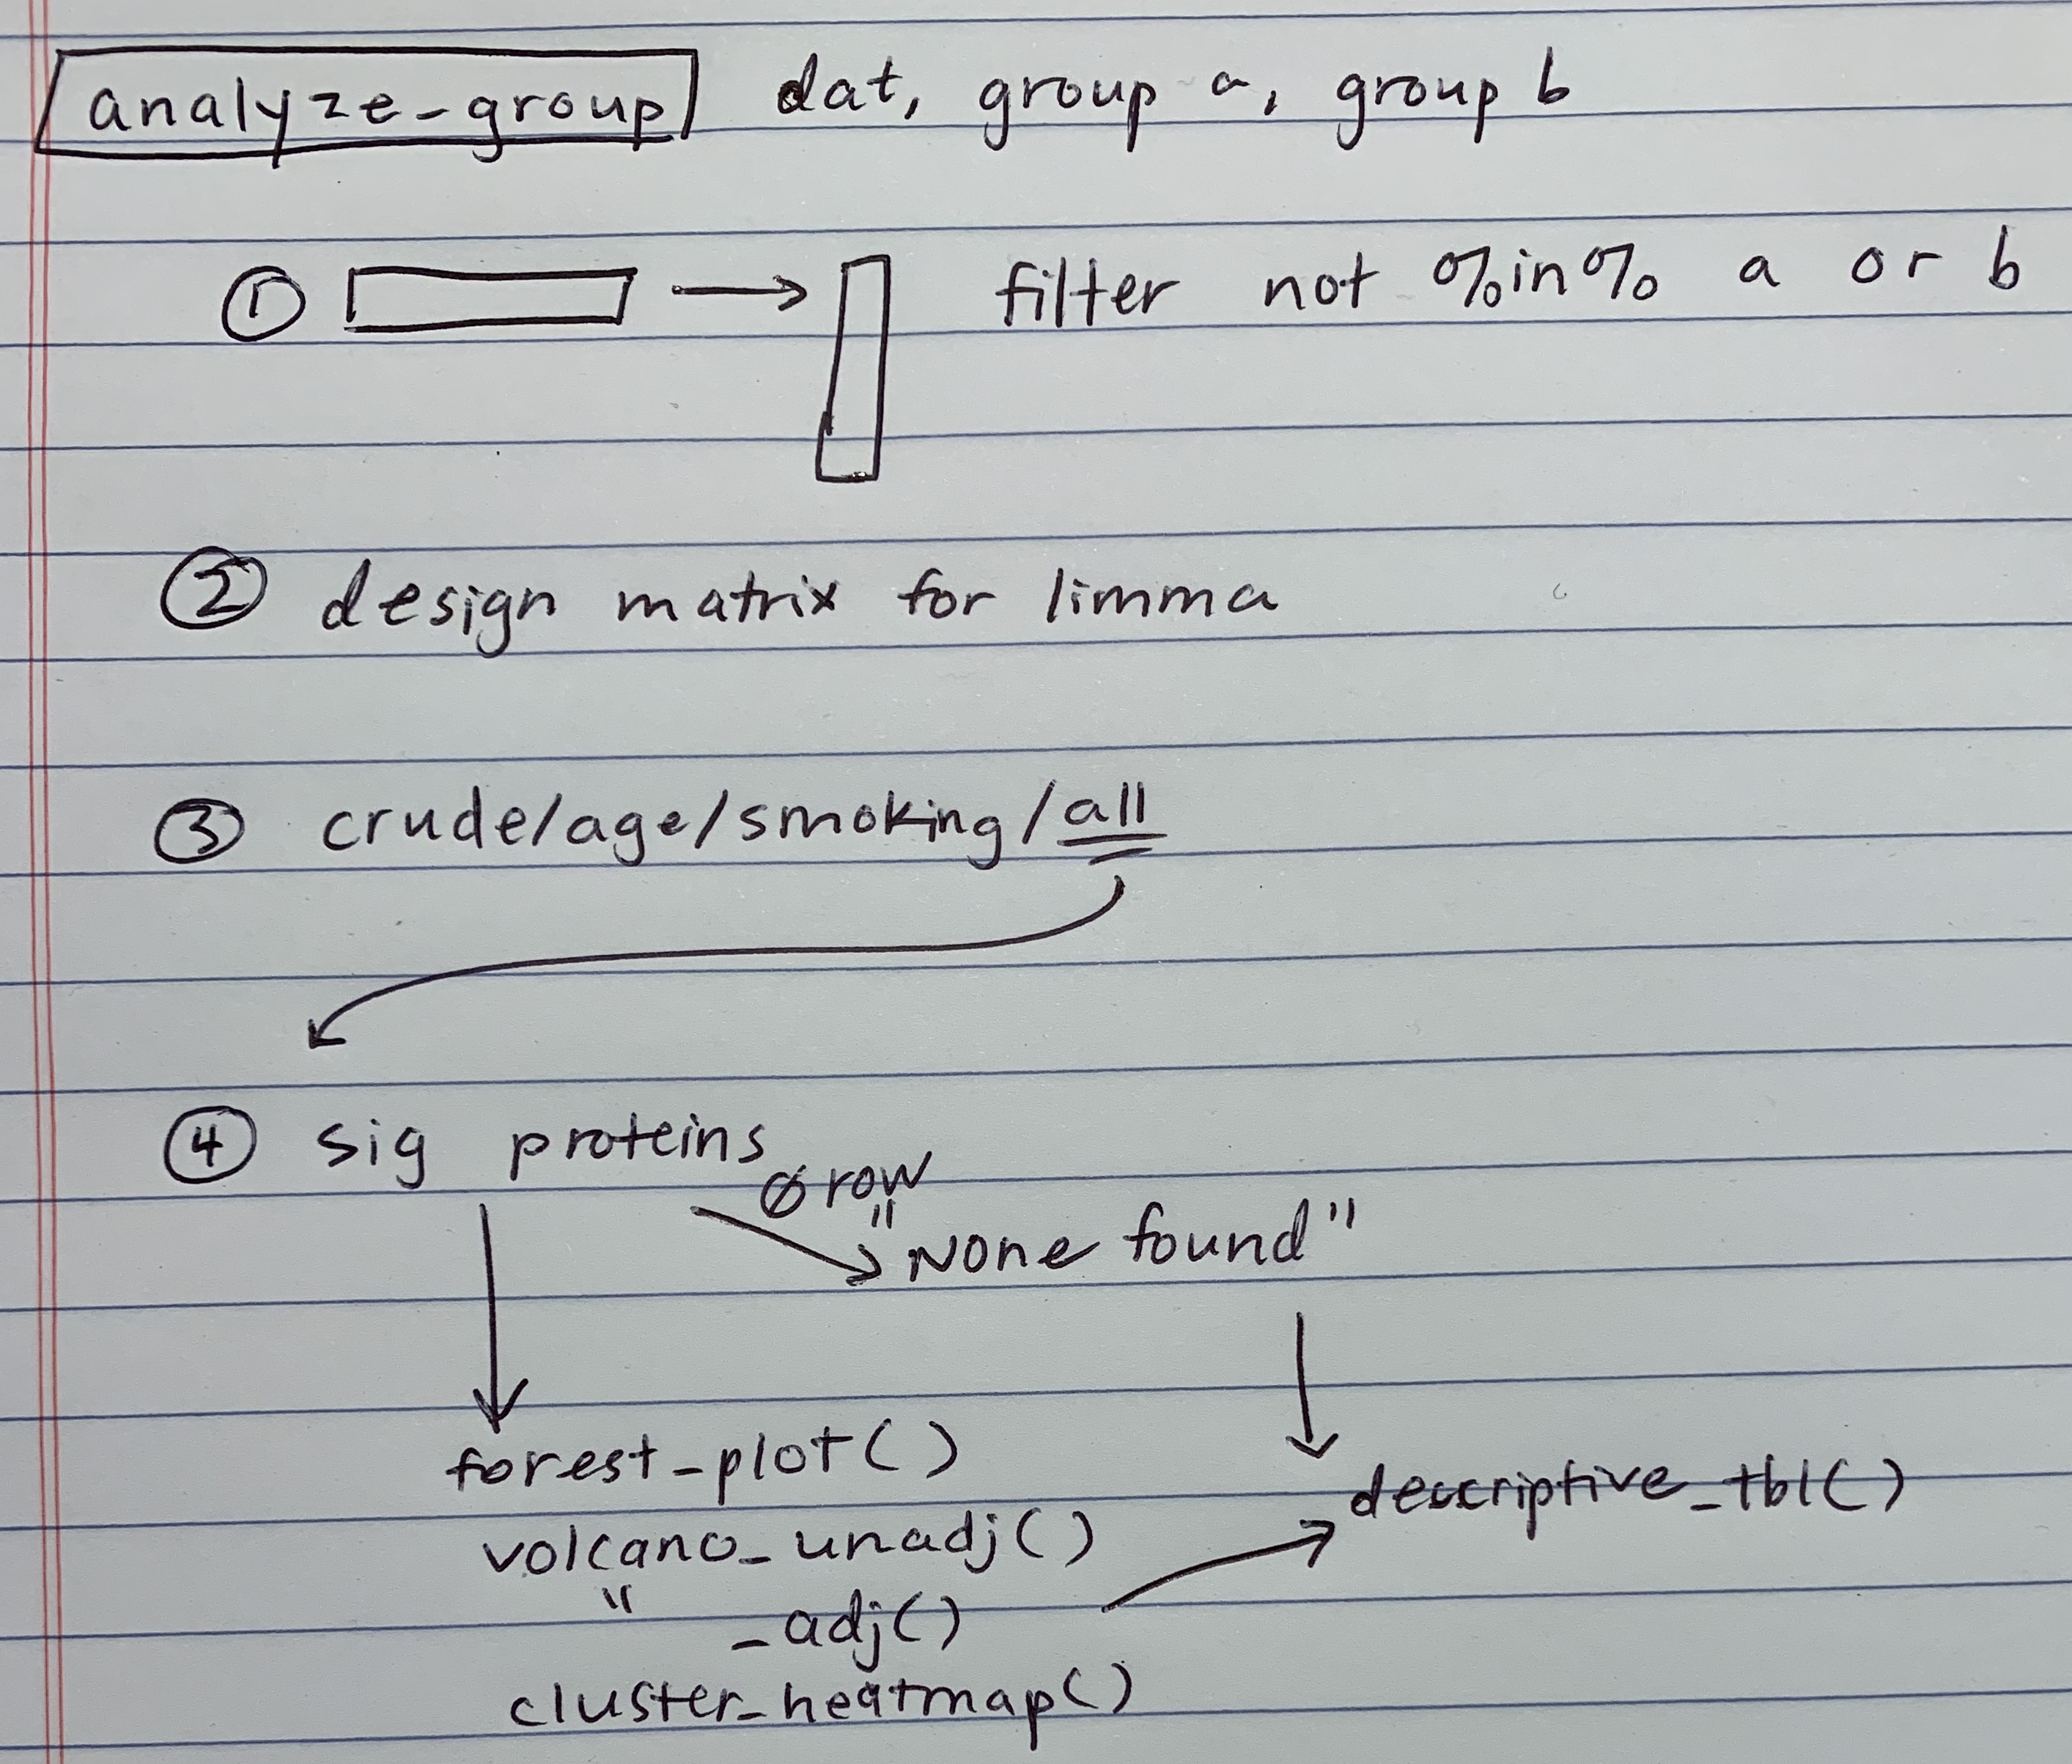 analyze-group dat, group a, group b
① filter not %in% a or b
② design matrix for limma
③ crude/age/smoking/all
④ sig proteins
Ø row
"None found"
forest_plot()
descriptive_tbl()
volcano_unadj()
" _adj()
cluster_heatmap()